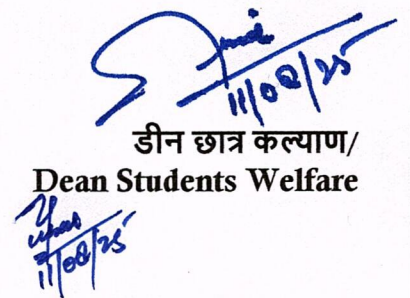 11/08/25
डीन छात्र कल्याण/
Dean Students Welfare
11/08/25